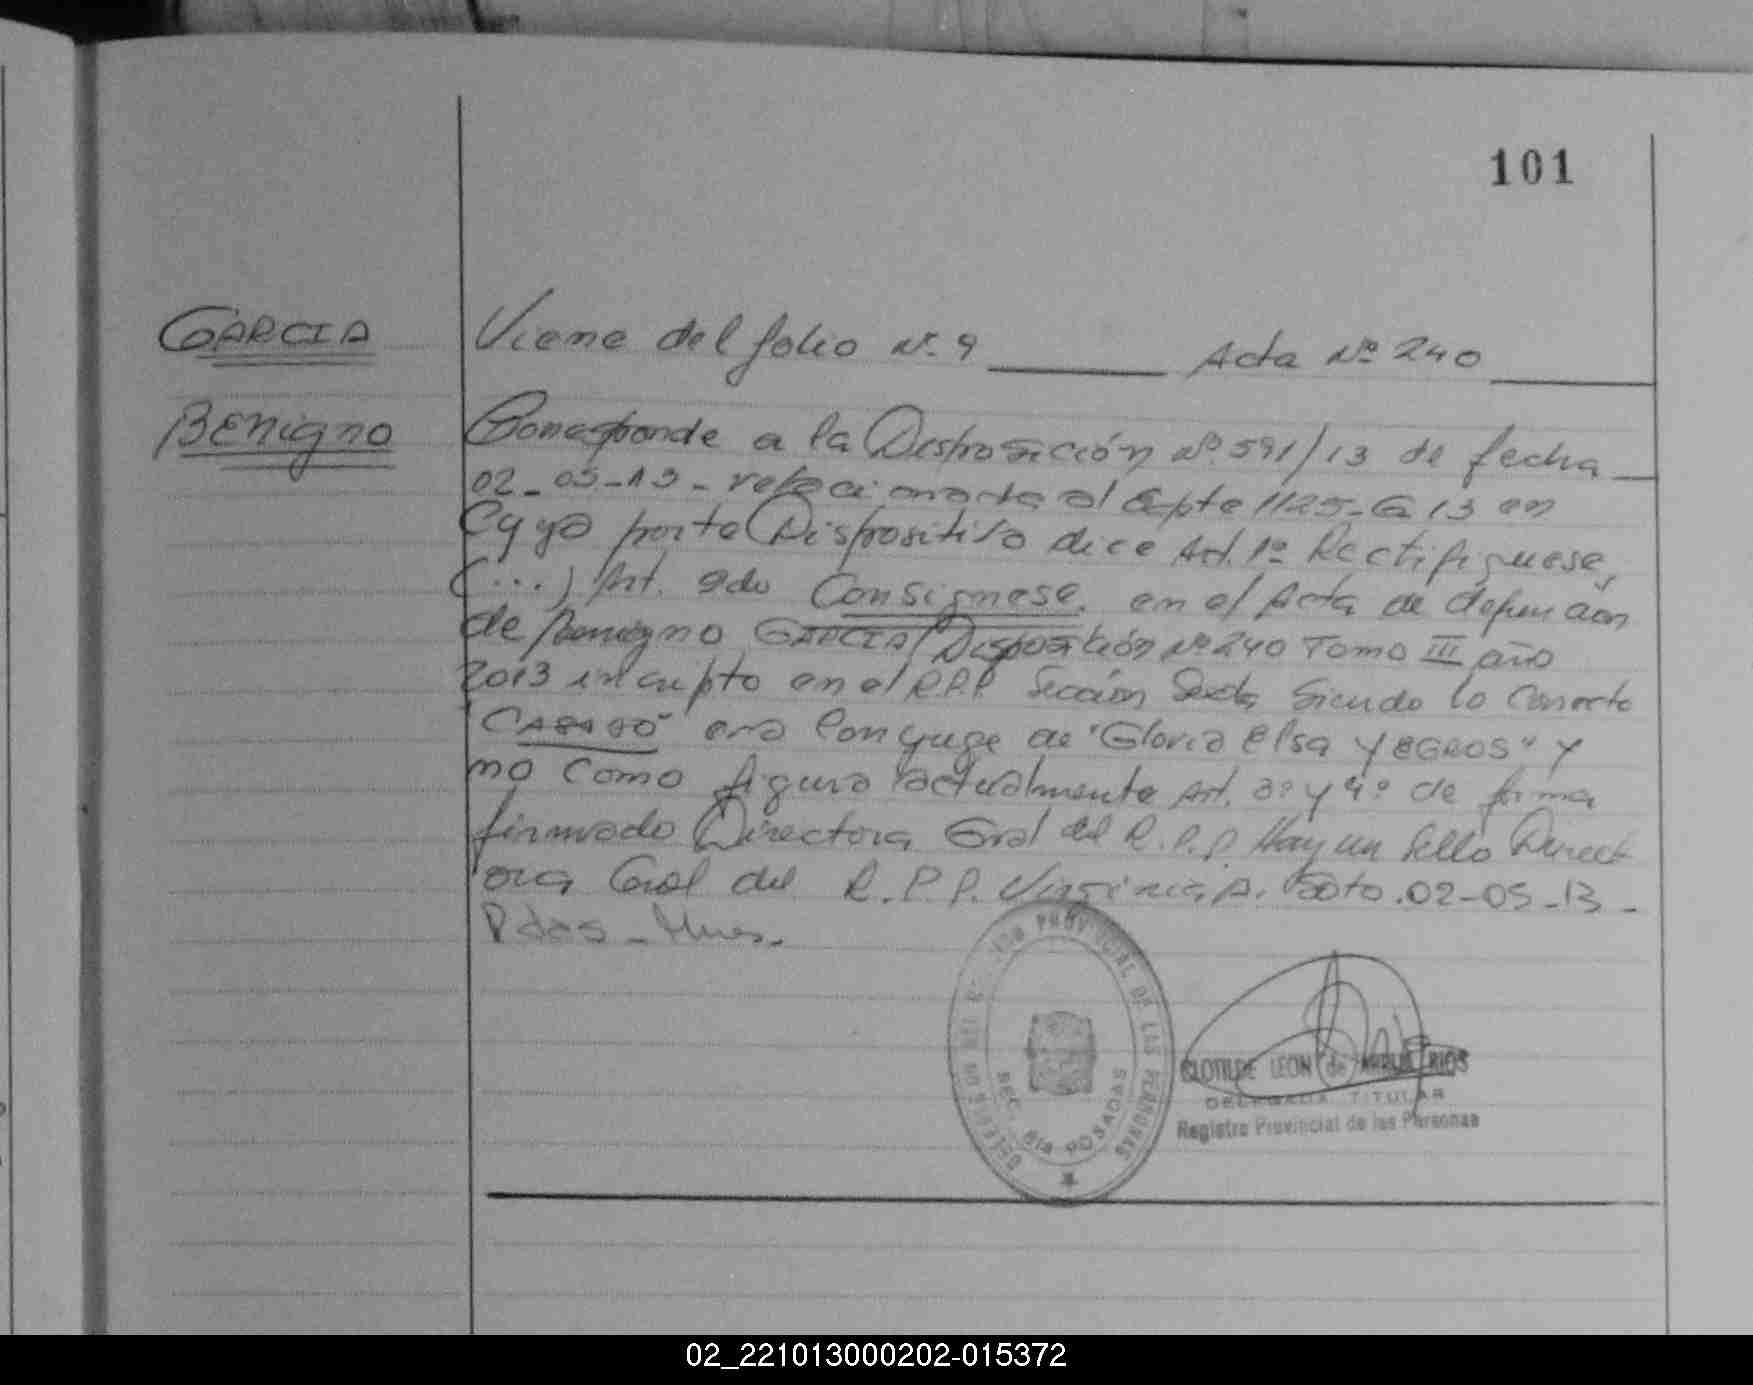 101
GARCIA
Viene del folio Nº 9 Acta Nº 240
Benigno
Corresponde a la Disposición Nº 591/13 de fecha
02-05-13 - relacionada al Expte 1125-G 13 en
Cuya parte Dispositiva dice Art. 1º Rectifiquese,
(...) Art. 2do Consignese. en el Acta de defunción
de Benigno GARCIA Disposición Nº 240 Tomo III año
2013 inscripto en el R.P.P Sección Sexta Siendo lo Correcto
"CASADO" era Conyuge de "Gloria Elsa YEGROS" y
no como figura actualmente Art. 3º y 4º de forma
firmado Directora Gral del R.P.P. Hay un Sello Direct
ora Gral del R.P.P. Virginia A. Soto. 02-05-13-
Pdas - Mnes.
PROVINCIAL DE LAS PERSONAS
SEC. 6ta POSADAS
CLOTILDE LEON de RIOS
DELEGADA TITULAR
Registro Provincial de las Personas
02_221013000202-015372